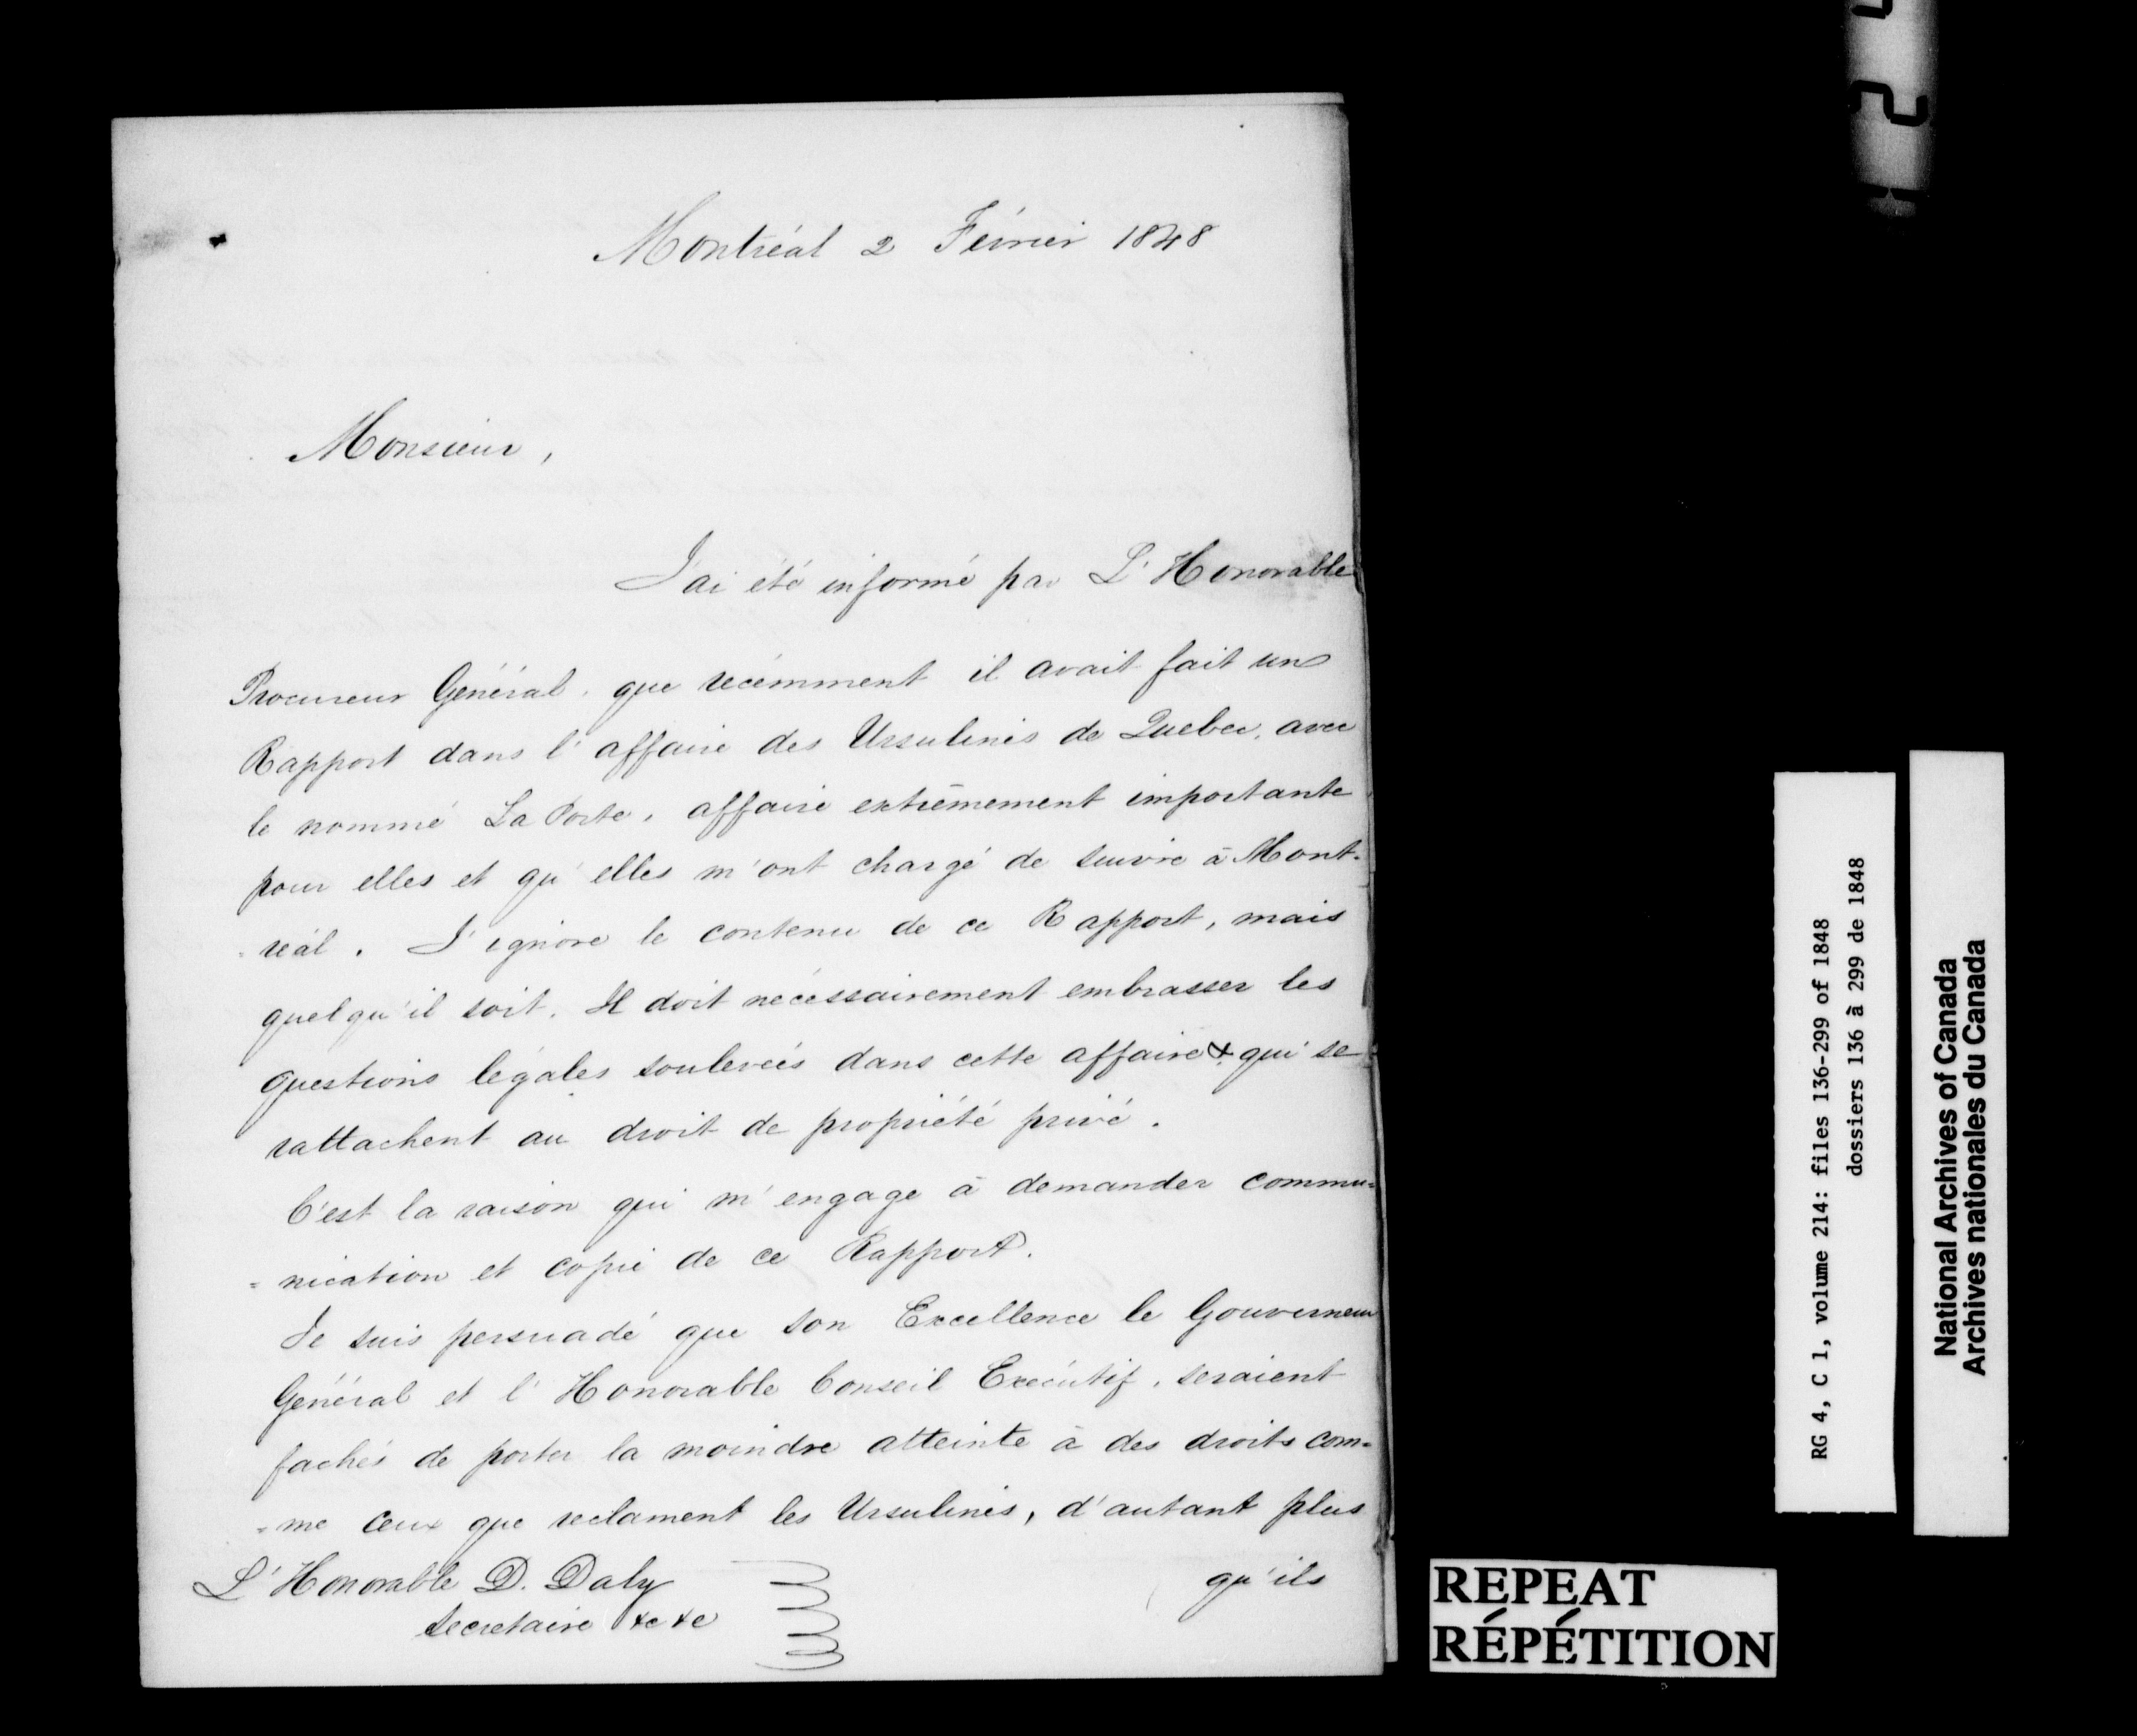 Montréal 2 Février 1848
Monsieur,
J'ai été informé par L'Honorable
Procureur Général, que récemment il avait fait un
Rapport dans l'affaire des Ursulines de Quebec, avec
le nommé La Porte, affaire extrêmement importante
pour elles et qu'elles m'ont chargé de suivre à Mont-
-réal. J'ignore le contenu de ce Rapport, mais
quelqu'il soit, Il doit nécessairement embrasser les
questions légales soulevées dans cette affaire & qui se
rattachent au droit de propriété privé.
C'est la raison qui m'engage à demander commu=
=nication et copie de ce Rapport.
Je suis persuadé que son Excellence le Gouverneur
Général et l'Honorable Conseil Exécutif, seraient
fachés de porter la moindre atteinte à des droits com=
=me ceux que reclament les Ursulines, d'autant plus
qu'ils
L'Honorable D. Daly
Secretaire &c &c
REPEAT
RÉPÉTITION
RG 4, C 1, volume 214: files 136-299 of 1848
dossiers 136 à 299 de 1848
National Archives of Canada
Archives nationales du Canada